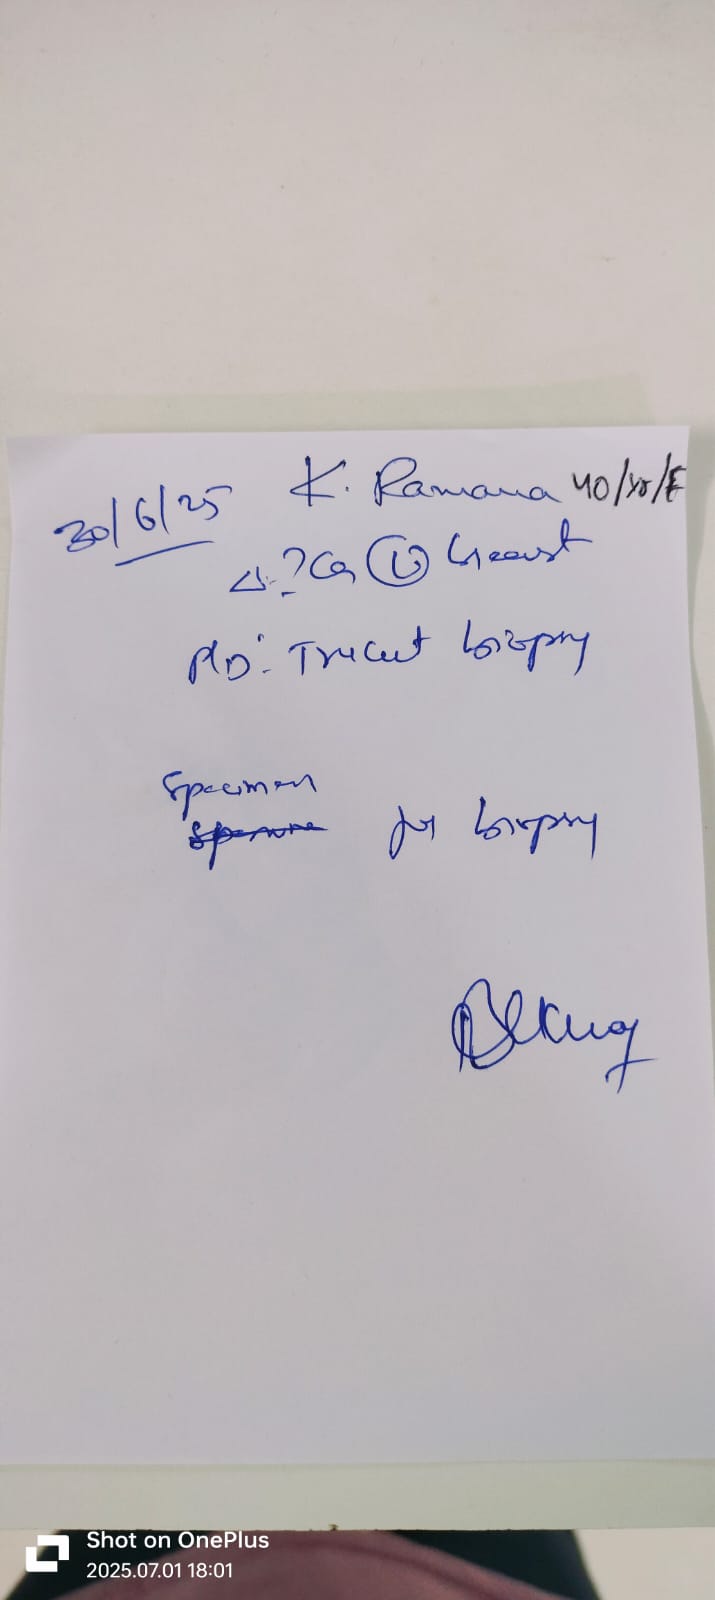 30/6/25 K. Ramana 40/yr/F
Δ:- ? Ca (L) breast
PLD: Trucut biopsy
Specimen
for biopsy
Shot on OnePlus
2025.07.01 18:01